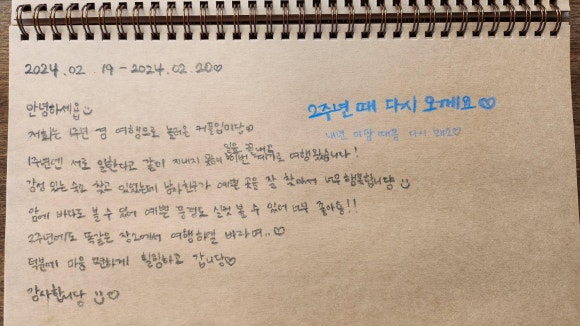 2024.02.19-2024.02.20♡
안녕하세욥
2주년 때 다시 오께요♡
저희는 1주년 겸 여행으로 놀러온 커플입미당
내년 이맘 때쯤 다시 봬요♡
일을 끝내고
1주년엔 서로 일한다고 같이 지내지 못해 이번 여행왔습니다!
감성 있는 숙소 찾고 있었는데 남자친구가 예쁜 곳을 잘 찾아서 너무 행복합니당
앞에 바다도 볼 수 있어 예쁜 풍경도 실컷 볼 수 있어 너무 좋아용!!
2주년에도 똑같은 장소에서 여행하길 바라며..♡
덕분에 마음 편하게 힐링하고 갑니당♡
감사합니당 ♡